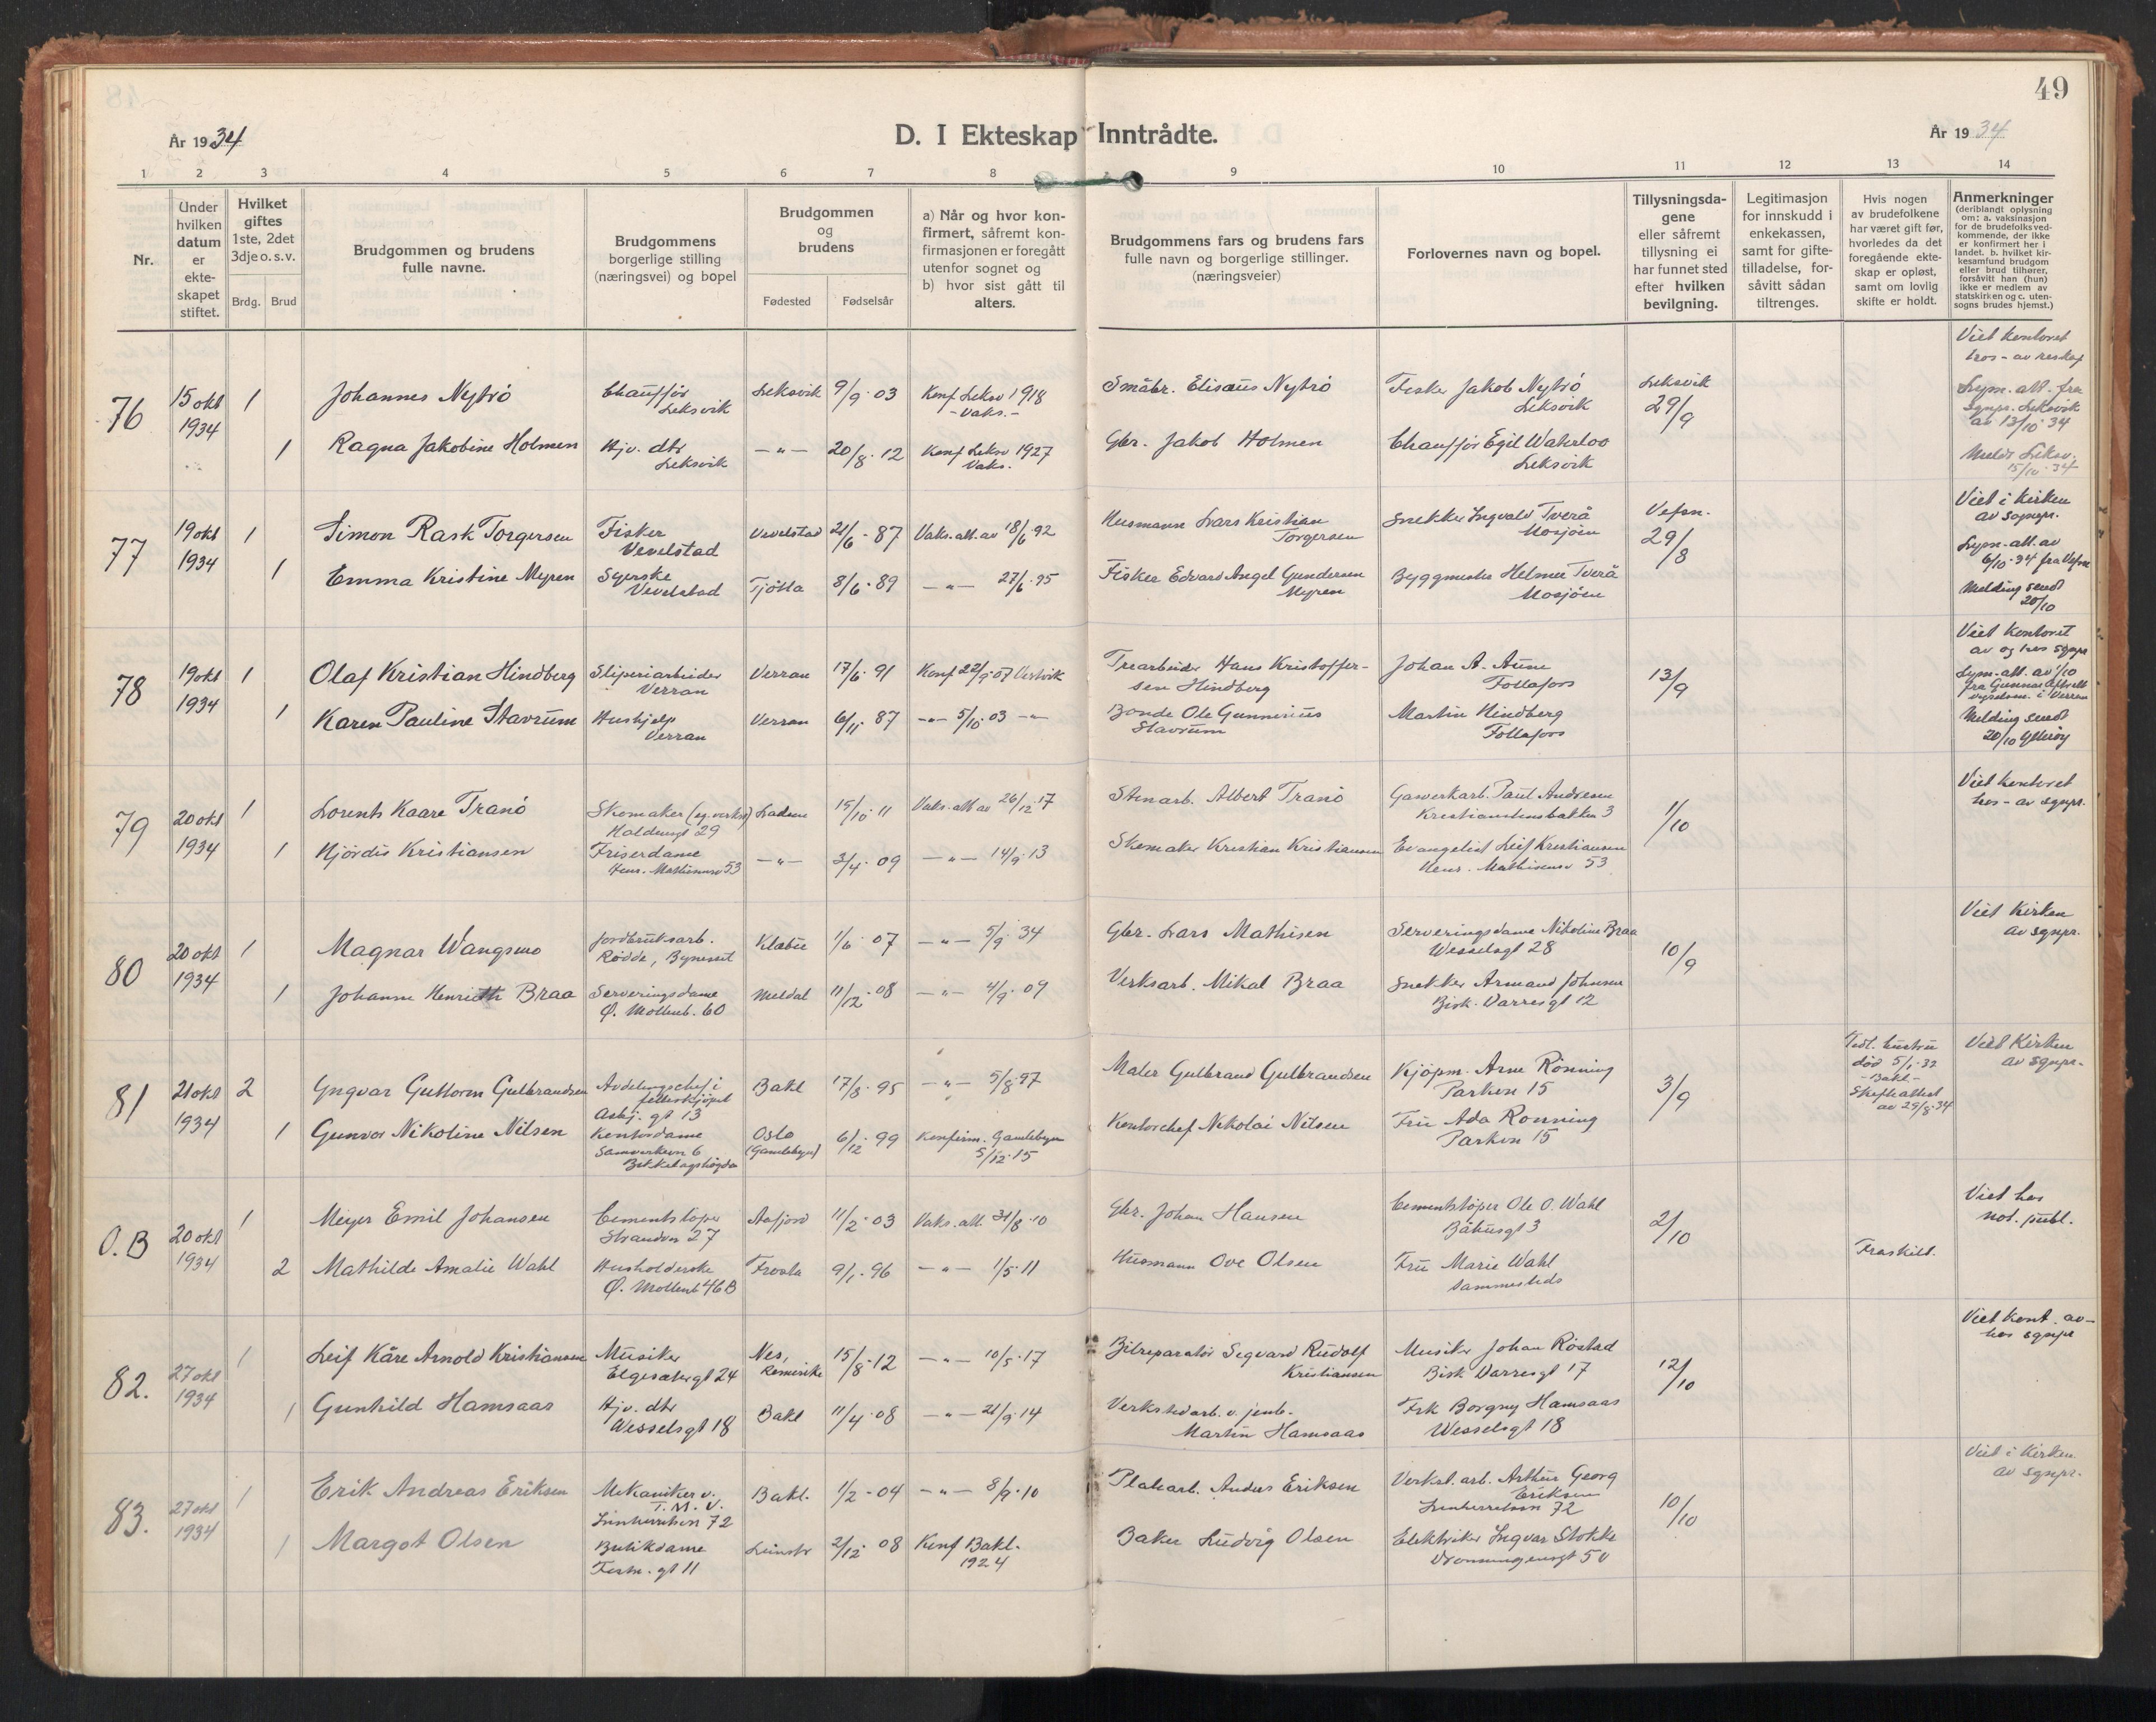 49
År 1934
D. I Ekteskap Inntrådte.
År 1934
1 2 3 4 5 6 7 8 9 10 11 12 13 14
Nr.
Under hvilken datum er ekteskapet stiftet.
Hvilket giftes 1ste, 2det 3dje o. s. v.
Brdg. Brud
Brudgommen og brudens fulle navne.
Brudgommens borgerlige stilling (næringsvei) og bopel
Brudgommen og brudens
Fødested Fødselsår
a) Når og hvor konfirmert, såfremt konfirmasjonen er foregått utenfor sognet og
b) hvor sist gått til alters.
Brudgommens fars og brudens fars fulle navn og borgerlige stillinger. (næringsveier)
Forlovernes navn og bopel.
Tillysningsdagene eller såfremt tillysning ei har funnet sted efter hvilken bevilgning.
Legitimasjon for innskudd i enkekassen, samt for giftetilladelse, forsåvitt sådan tiltrenges.
Hvis nogen av brudefolkene har været gift før, hvorledes da det foregående ekteskap er opløst, samt om lovlig skifte er holdt.
Anmerkninger (deriblandt oplysning om: a. vaksinasjon for de brudefolks vedkommende, der ikke er konfirmert her i landet. b. hvilket kirkesamfund brudgom eller brud tilhører, forsåvitt han (hun) ikke er medlem av statskirken og c. utensogns brudes hjemst.)
76 15 okt 1934 1 Johannes Nytrö Chauffør Leksvik Leksvik 9/9·03 Konf Leksv 1918 - Vaks. - Småbr. Elisæus Nytrö Fisker Jakob Nytrö Leksvik Leksvik 29/9 Viet kontoret
Lysn.-att. fra sgnpr. Leksvik av 13/10 34
1 Ragna Jakobine Holmen Hjv. dtr Leksvik -"- 20/8·12 Konf Leksv 1927 Vaks. Gbr. Jakob Holmen Chauffør Egil Waterloo Leksvik Meldt Leksv. 15/10·34
77 19 okt 1934 1 Simon Rask Torgersen Fisker Vevelstad Vevelstad 21/6-87 Vaks.att. av 18/6·92 Husmann Lars Kristian Torgersen Snekker Ingvald Tverå Mosjöen Vefsn. 29/8 Viet i Kirken av sognepr.
Lysn-att. av 6/10·34 fra Vefsn
1 Emma Kristine Myren Syerske Vevelstad Tjötta 8/6·89 -"- 27/6·95 Fisker Edvard Angel Gundersen Myren Byggmester Helmer Tverå Mosjöen Melding sendt 20/10
78 19 okt 1934 1 Olaf Kristian Hindberg Sliperiarbeider Verran Verran 17/6·91 Konf 22/9·07 Trearbeider Hans Kristoffersen Hindberg Johan A. Aune Follafoss 13/9 Viet kontoret av og hos sgnpr
Lysn-att. av 1/10 fra Gunnar i Verran
1 Karen Pauline Stavrum Hushjelp Verran Verran 6/11·87 -"- 5/10·03 -"- Bonde Ole Gunnerius Stavrum Martin Hindberg Follafoss Melding sendt 20/10 Ytterøy
79 20 okt 1934 1 Lorents Kaare Tranö Skomaker (eg. verkst) Haldensgt 29 Lademo 15/10·11 Vaks.att av 26/12·17 Stenarb. Albert Tranö Gaverkarb. Paul Andresen Kristianstensbakken 3 1/10 Viet kontoret hos - av sgnpr.
1 Hjördis Kristiansen Friserdame Henr. Mathisensv 53 -"- 3/4·09 -"- 14/9·13 Skomaker Kristian Kristiansen Evangelist Leif Kristiansen Henr. Mathisensv 53
80 20 okt 1934 1 Magnar Wangsmo Jordbruksarb. Rødde, Byneset Klæbu 1/6·07 -"- 5/9·34 Gbr. Lars Mathisen Serveringsdame Nikoline Braa Wesselsgt 28 10/9 Viet Kirken av sgnpr.
1 Johanne Henriette Braa Serveringsdame Ø. Mollenb. 60 Meldal 11/12·08 -"- 4/9·09 Verksarb. Mikal Braa Snekker Armand Johnsen Bisk. Darresgt 12
81 21 okt 1934 2 Yngvar Guttorm Gulbrandsen Avdelingschef i felleskjöpet Asbj. gt 13 Bakl 17/8·95 -"- 5/8·97 Maler Gulbrand Gulbrandsen Kjöpm. Arne Rönning Parken 15 3/9 Tidl. hustru död 5/1·32 - Bakl - Skifteattest av 29/8·34 Viet Kirken av sgnpr.
1 Gunvor Nikoline Nilsen Kontordame Samverksv 6 Bekkelagshøgda Oslo (Gamlebyen) 6/12·99 Konfirm. Gamlebyen 5/12·15 Kontorchef Nikolai Nilsen Fru Ada Rönning Parken 15
O.B 20 okt 1934 1 Meyer Emil Johansen Cementstöper Strandvn 27 Aafjord 11/2·03 Vaks.att. 31/8·10 Gbr. Johan Hansen Cementstöper Ole O. Wahl Båhusgt 3 2/10 Viet hos not. publ.
2 Mathilde Amalie Wahl Husholderske Ø. Mollenb 46B Frosta 9/1·96 -"- 1/5·11 Husmann Ove Olsen Fru Marie Wahl sammesteds Fraskilt.
82. 27 okt 1934 1 Leif Kåre Arnold Kristiansen Musiker Elgesætergt 24 Nes, Romerike 15/8·12 -"- 10/5·17 Bilreparatör Sigvard Rudolf Kristiansen Musiker Johan Röstad Bisk Darresgt 17 12/10 Viet kont. av - hos sgnpr
1 Gunhild Hamsaas Hjv. dtr Wesselsgt 18 Bakl 11/4·08 -"- 21/9·14 Verkstedarb. v. jernb. Martin Hamsaas Frk Borgny Hamsaas Wesselsgt 18
83. 27 okt 1934 1 Erik Andreas Eriksen Mekaniker v. T.M.V. Innherredsvn 72 Bakl. 1/2-04 -"- 8/9·10 Platearb. Anders Eriksen Verkst. arb. Arthur Georg Eriksen Innherredsvn 72 10/10 Viet i Kirken av sgnpr.
1 Margot Olsen Butikdame Festn. gt 11 Leinstr 2/12·08 Konf Bakl. 1924 Baker Ludvig Olsen Elektriker Ingvar Stokke Dronningensgt 50